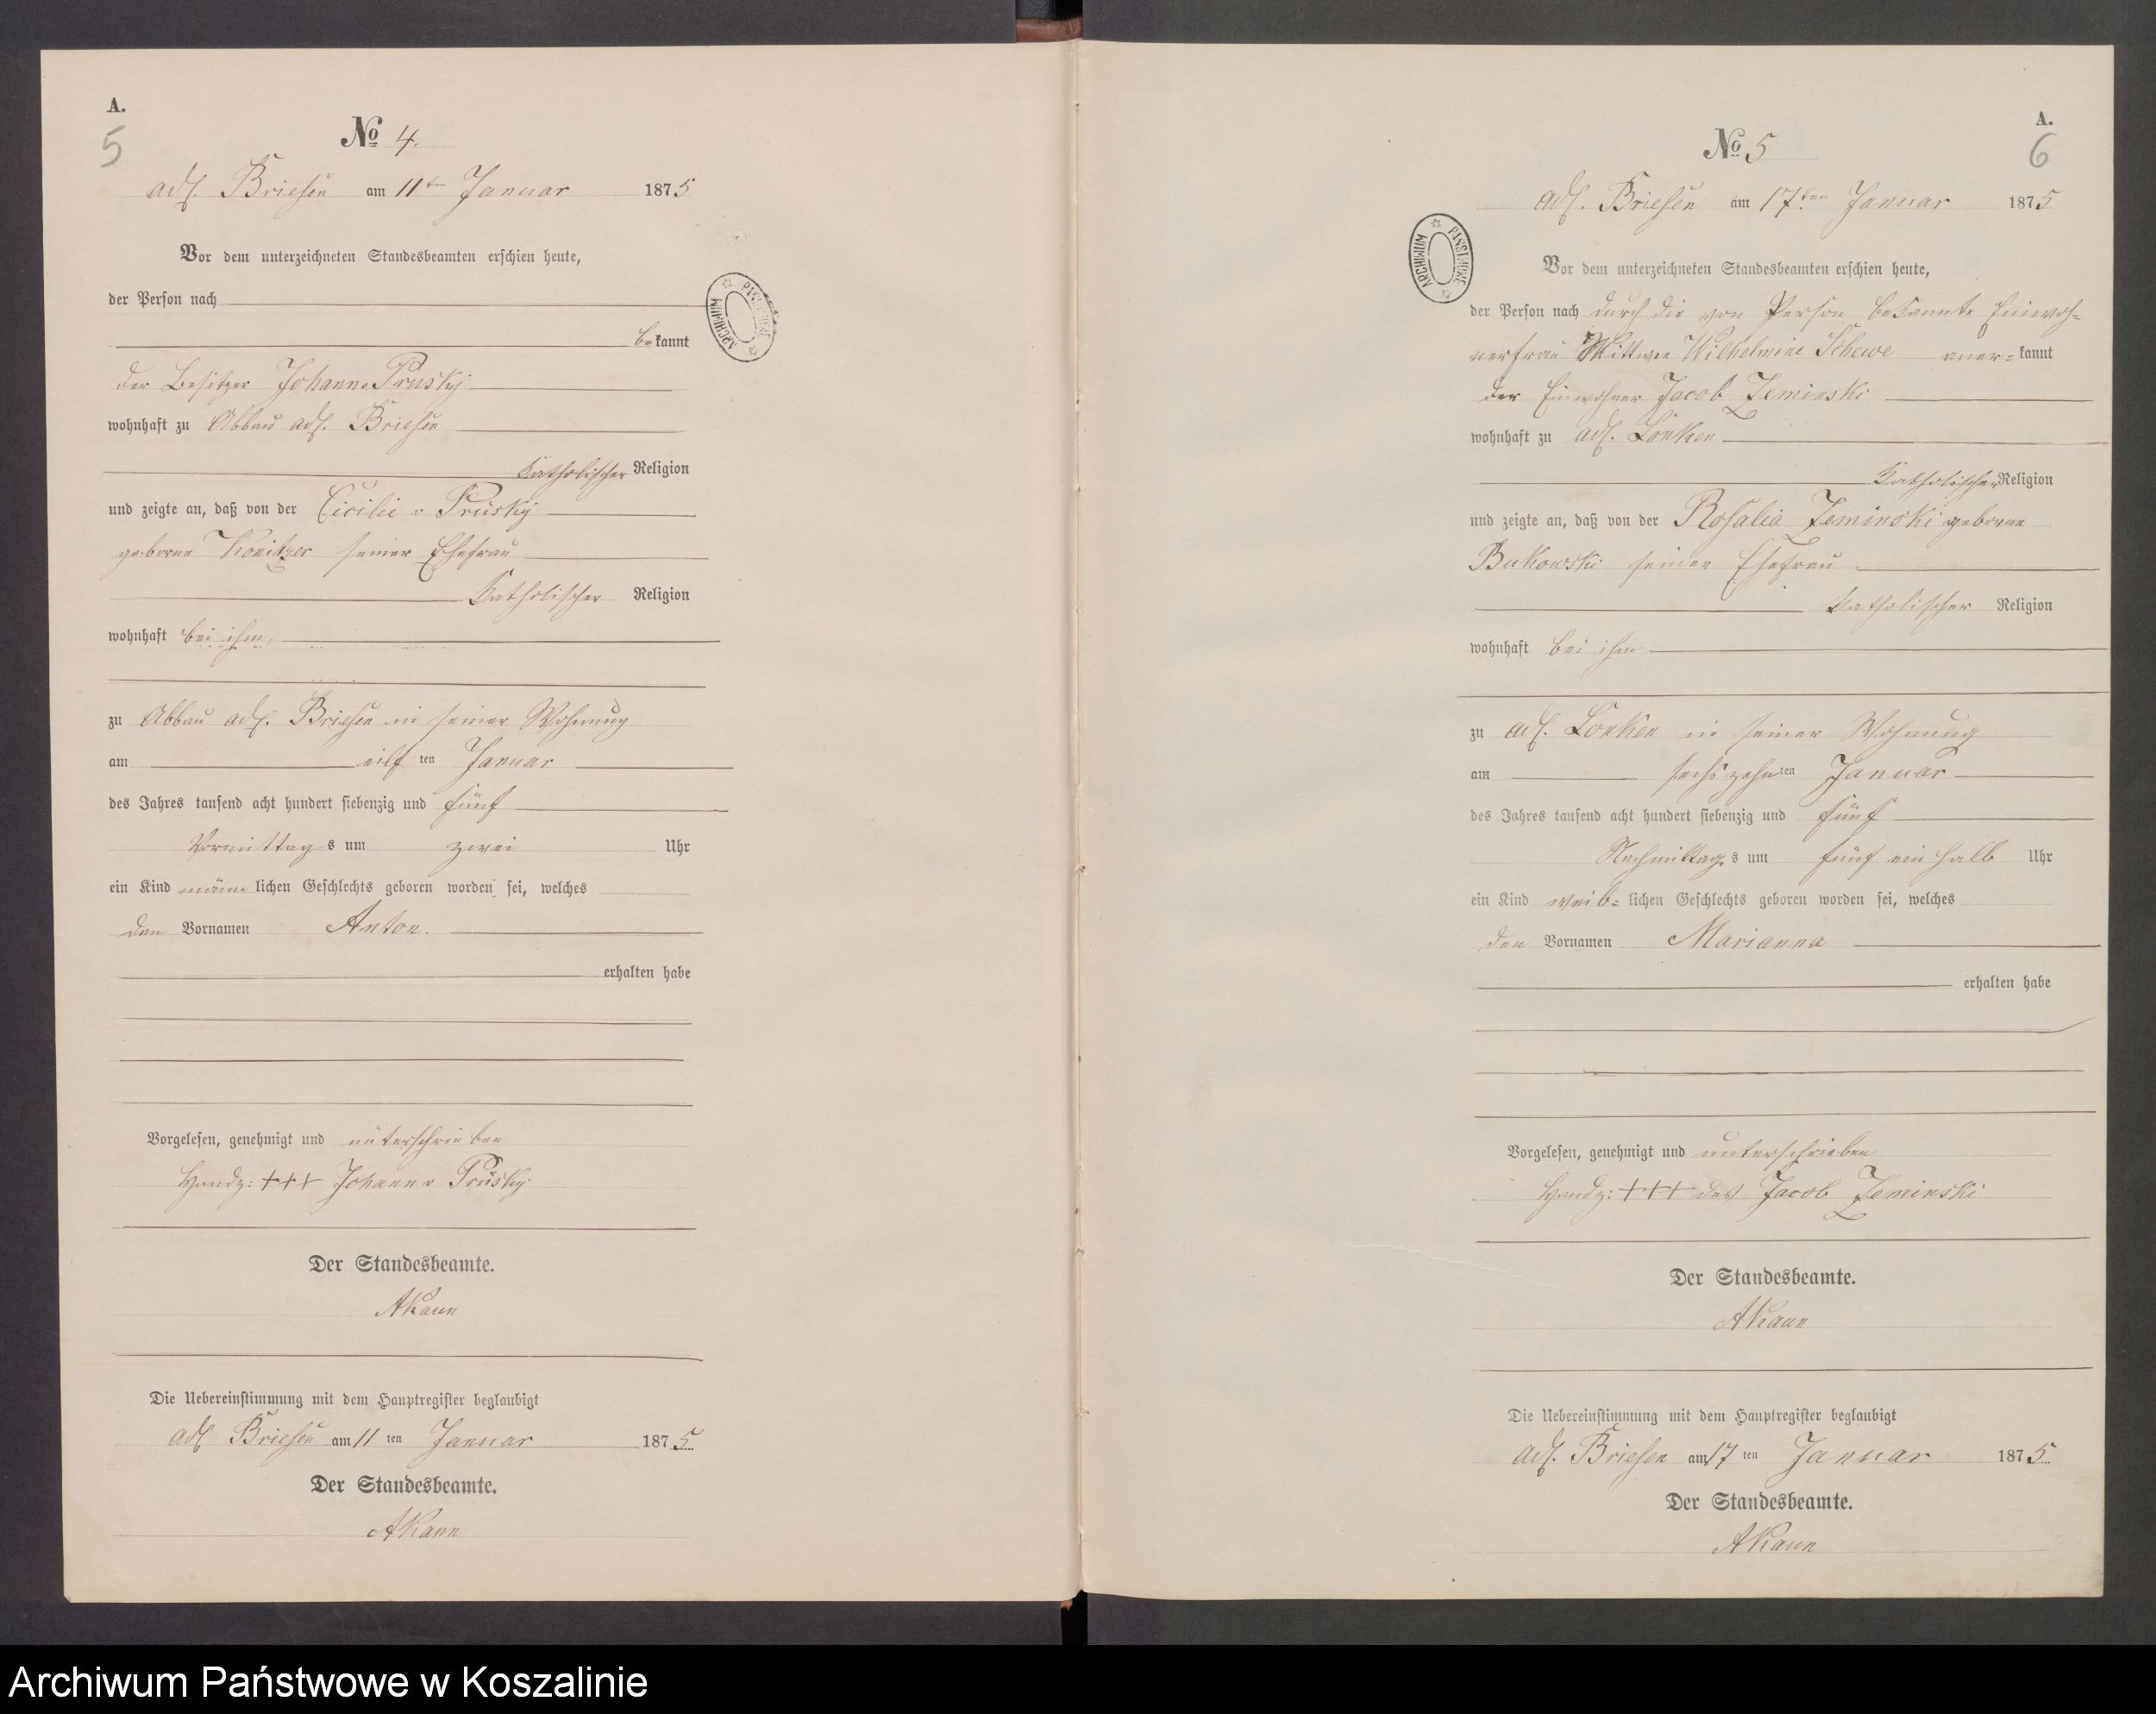 A.
5
No 4.
adl. Briesen am 11ten Januar 1875
Vor dem unterzeichneten Standesbeamten erschien heute,
der Person nach
bekannt
der Besitzer Johann v Prusky
wohnhaft zu Abbau adl. Briesen
katholischer Religion
und zeigte an, daß von der Cicilie v Prüsky
geborne Konitzer seiner Ehefrau
katholischer Religion
wohnhaft bei ihm,
zu Abbau adl. Briesen in seiner Wohnung
am eilf ten Januar
des Jahres tausend acht hundert siebenzig und fünf
Vormittags um zwei Uhr
ein Kind männlichen Geschlechts geboren worden sei, welches
den Vornamen Anton.
erhalten habe
Vorgelesen, genehmigt und unterschrieben
Handz: +++ Johann v Prüsky
Der Standesbeamte.
AKaun
Die Uebereinstimmung mit dem Hauptregister beglaubigt
adl Briesen am 11 ten Januar 1875
Der Standesbeamte.
AKaun
ARCHIWUM PAŃSTWOWE
A.
6
No 5
adl. Briesen am 17ten Januar 1875
Vor dem unterzeichneten Standesbeamten erschien heute,
der Person nach durch die von Person bekannte Einwoh=
nerfrau Wittwe Wilhelmine Schewe aner=kannt
der Einwohner Jacob Zeminski
wohnhaft zu adl. Lonken
katholischer Religion
und zeigte an, daß von der Rosalia Zeminski geborne
Bukowski seiner Ehefrau
katholischer Religion
wohnhaft bei ihm
zu adl. Lonken in seiner Wohnung
am sechszehn ten Januar
des Jahres tausend acht hundert siebenzig und fünf
Nachmittags um fünf ein halb Uhr
ein Kind weib=lichen Geschlechts geboren worden sei, welches
den Vornamen Marianna
erhalten habe
Vorgelesen, genehmigt und unterschrieben
Handz: +++ des Jacob Zeminski
Der Standesbeamte.
AKaun
Die Uebereinstimmung mit dem Hauptregister beglaubigt
adl. Briesen am 17 ten Januar 1875
Der Standesbeamte.
AKaun
ARCHIWUM PAŃSTWOWE
Archiwum Państwowe w Koszalinie